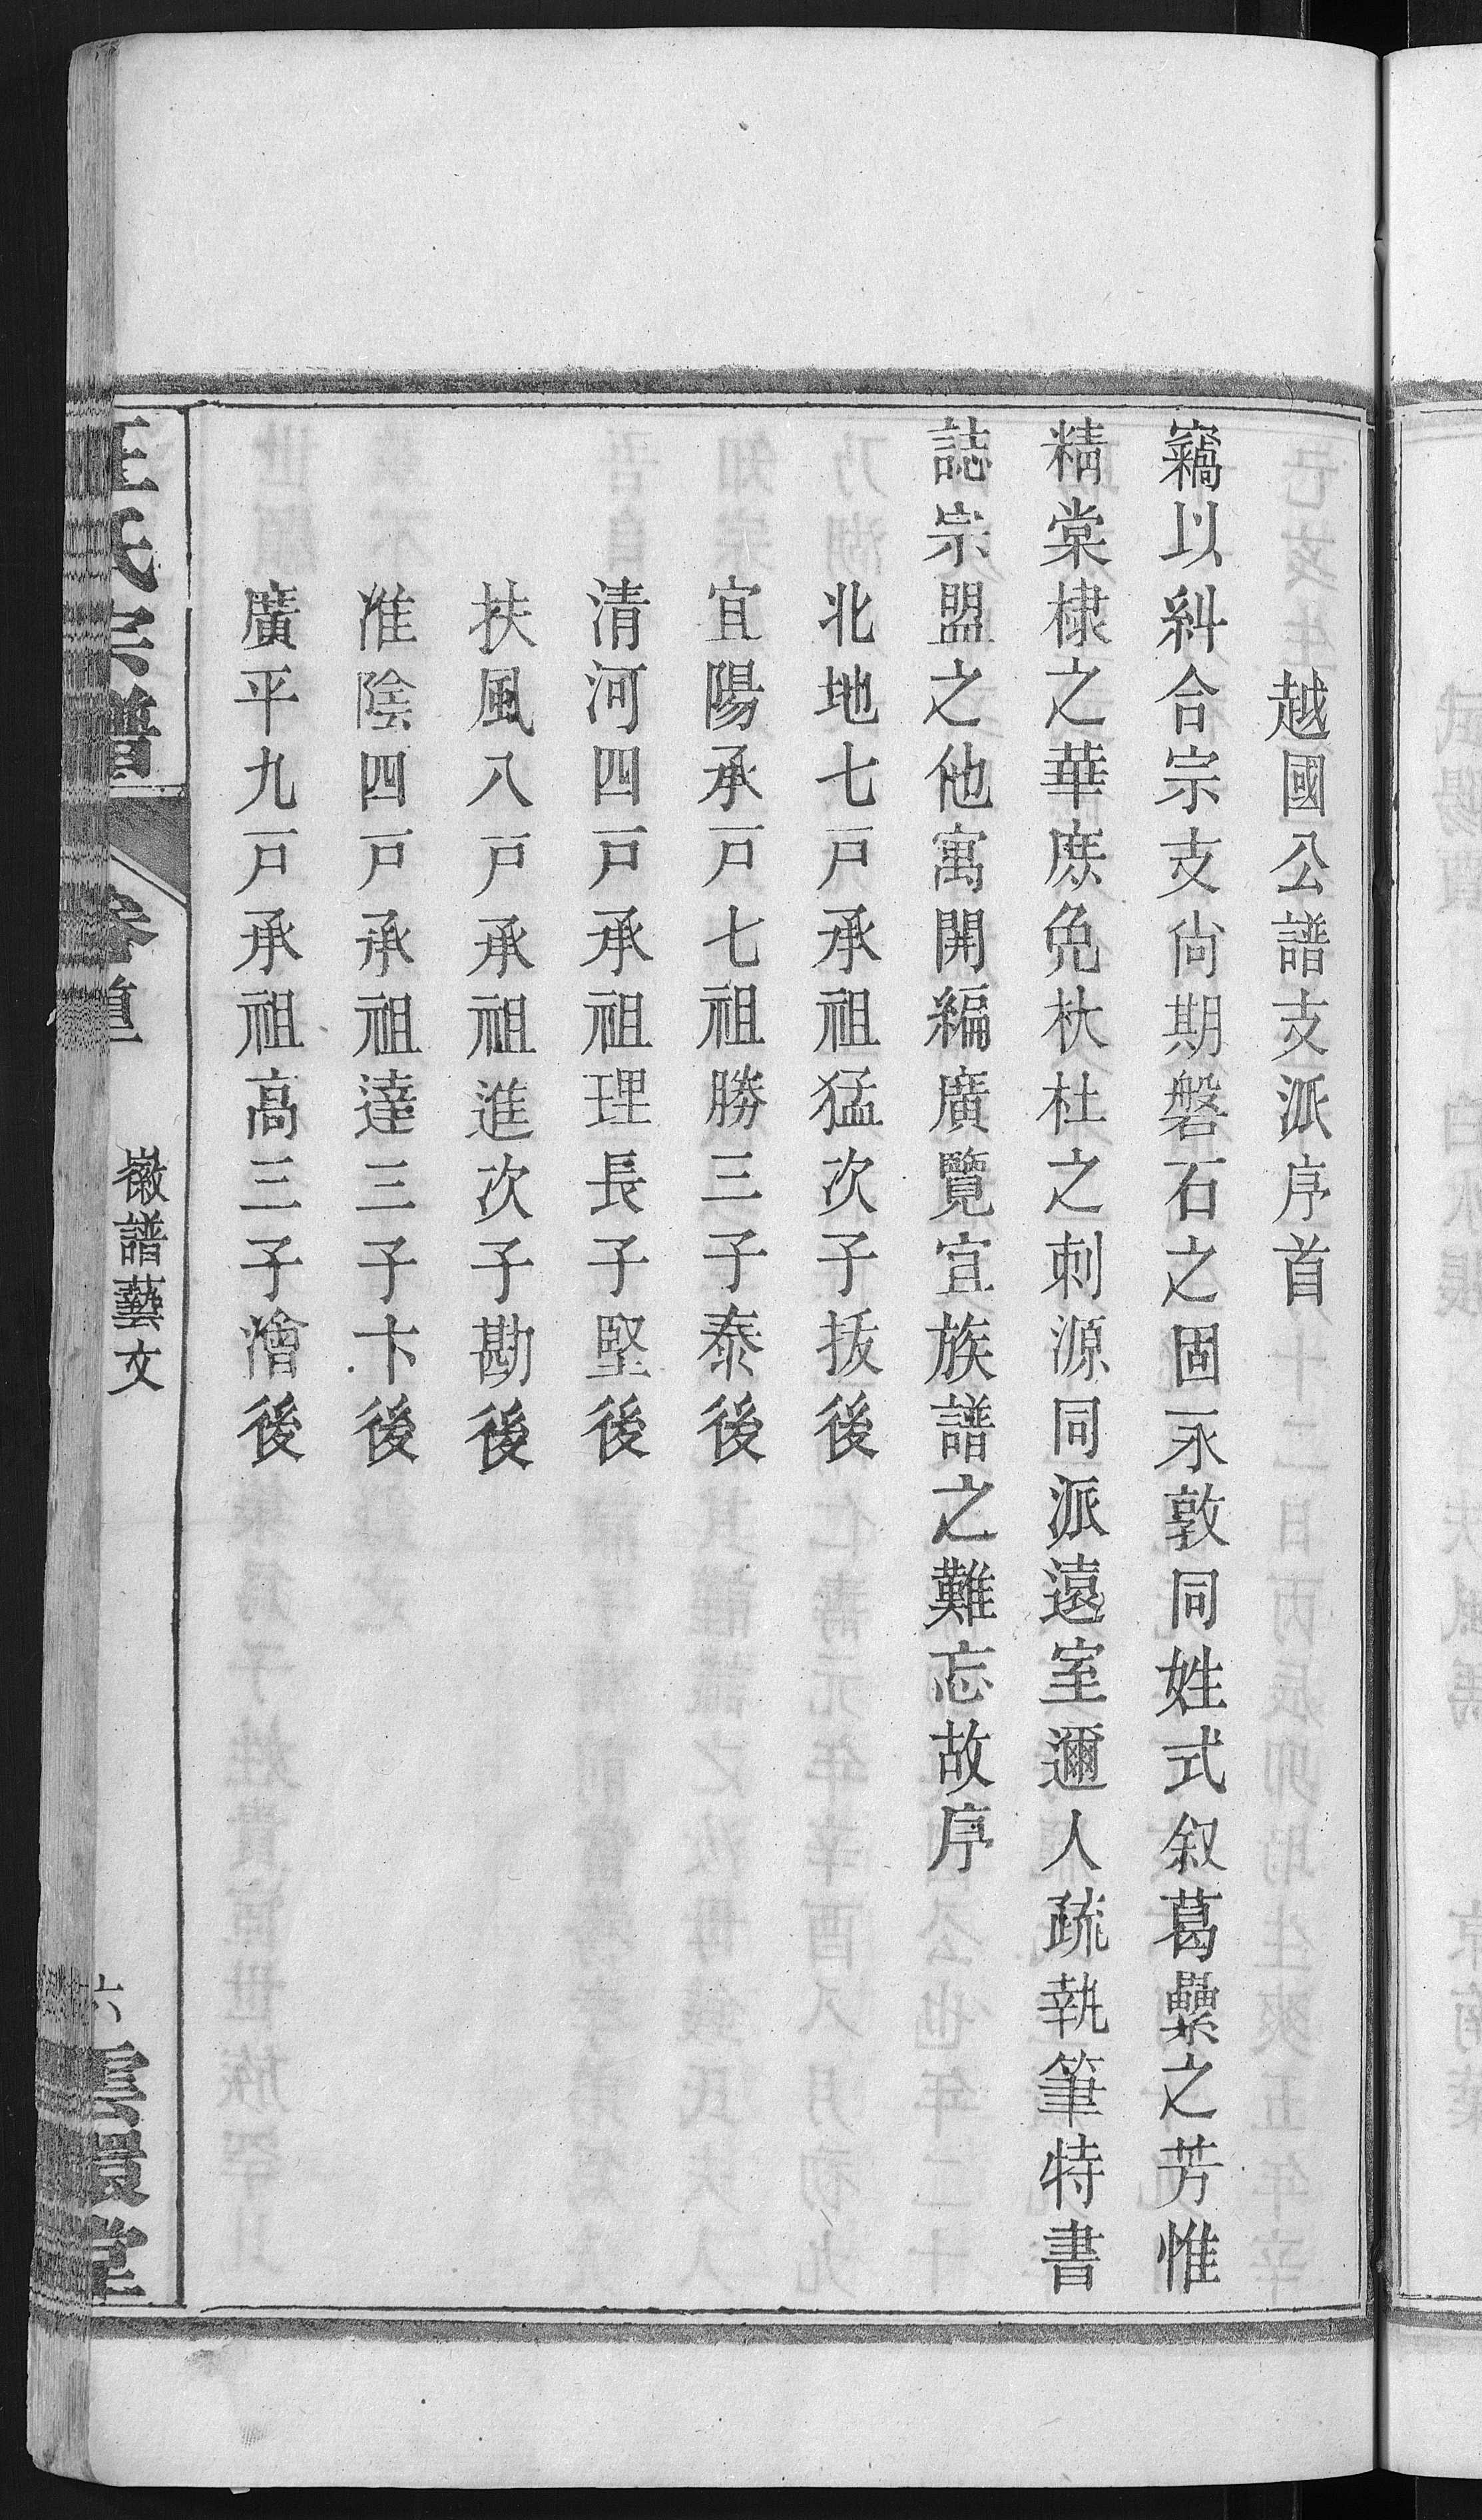 越國公譜支派序首
竊以糾合宗支尙期磐石之固永敦同姓式叙葛虆之芳惟
精棠棣之華庶免杕杜之刺源同派遠室邇人疏執筆特書
誌宗盟之他寓開編廣覽宜族譜之難忘故序
北地七戸承祖猛次子拔後
宜陽承戸七祖勝三子泰後
清河四戸承祖理長子堅後
扶風八戸承祖進次子勘後
淮陰四戸承祖達三子卞後
廣平九戸承祖高三子懀後
汪氏宗譜
徽譜藝文
六